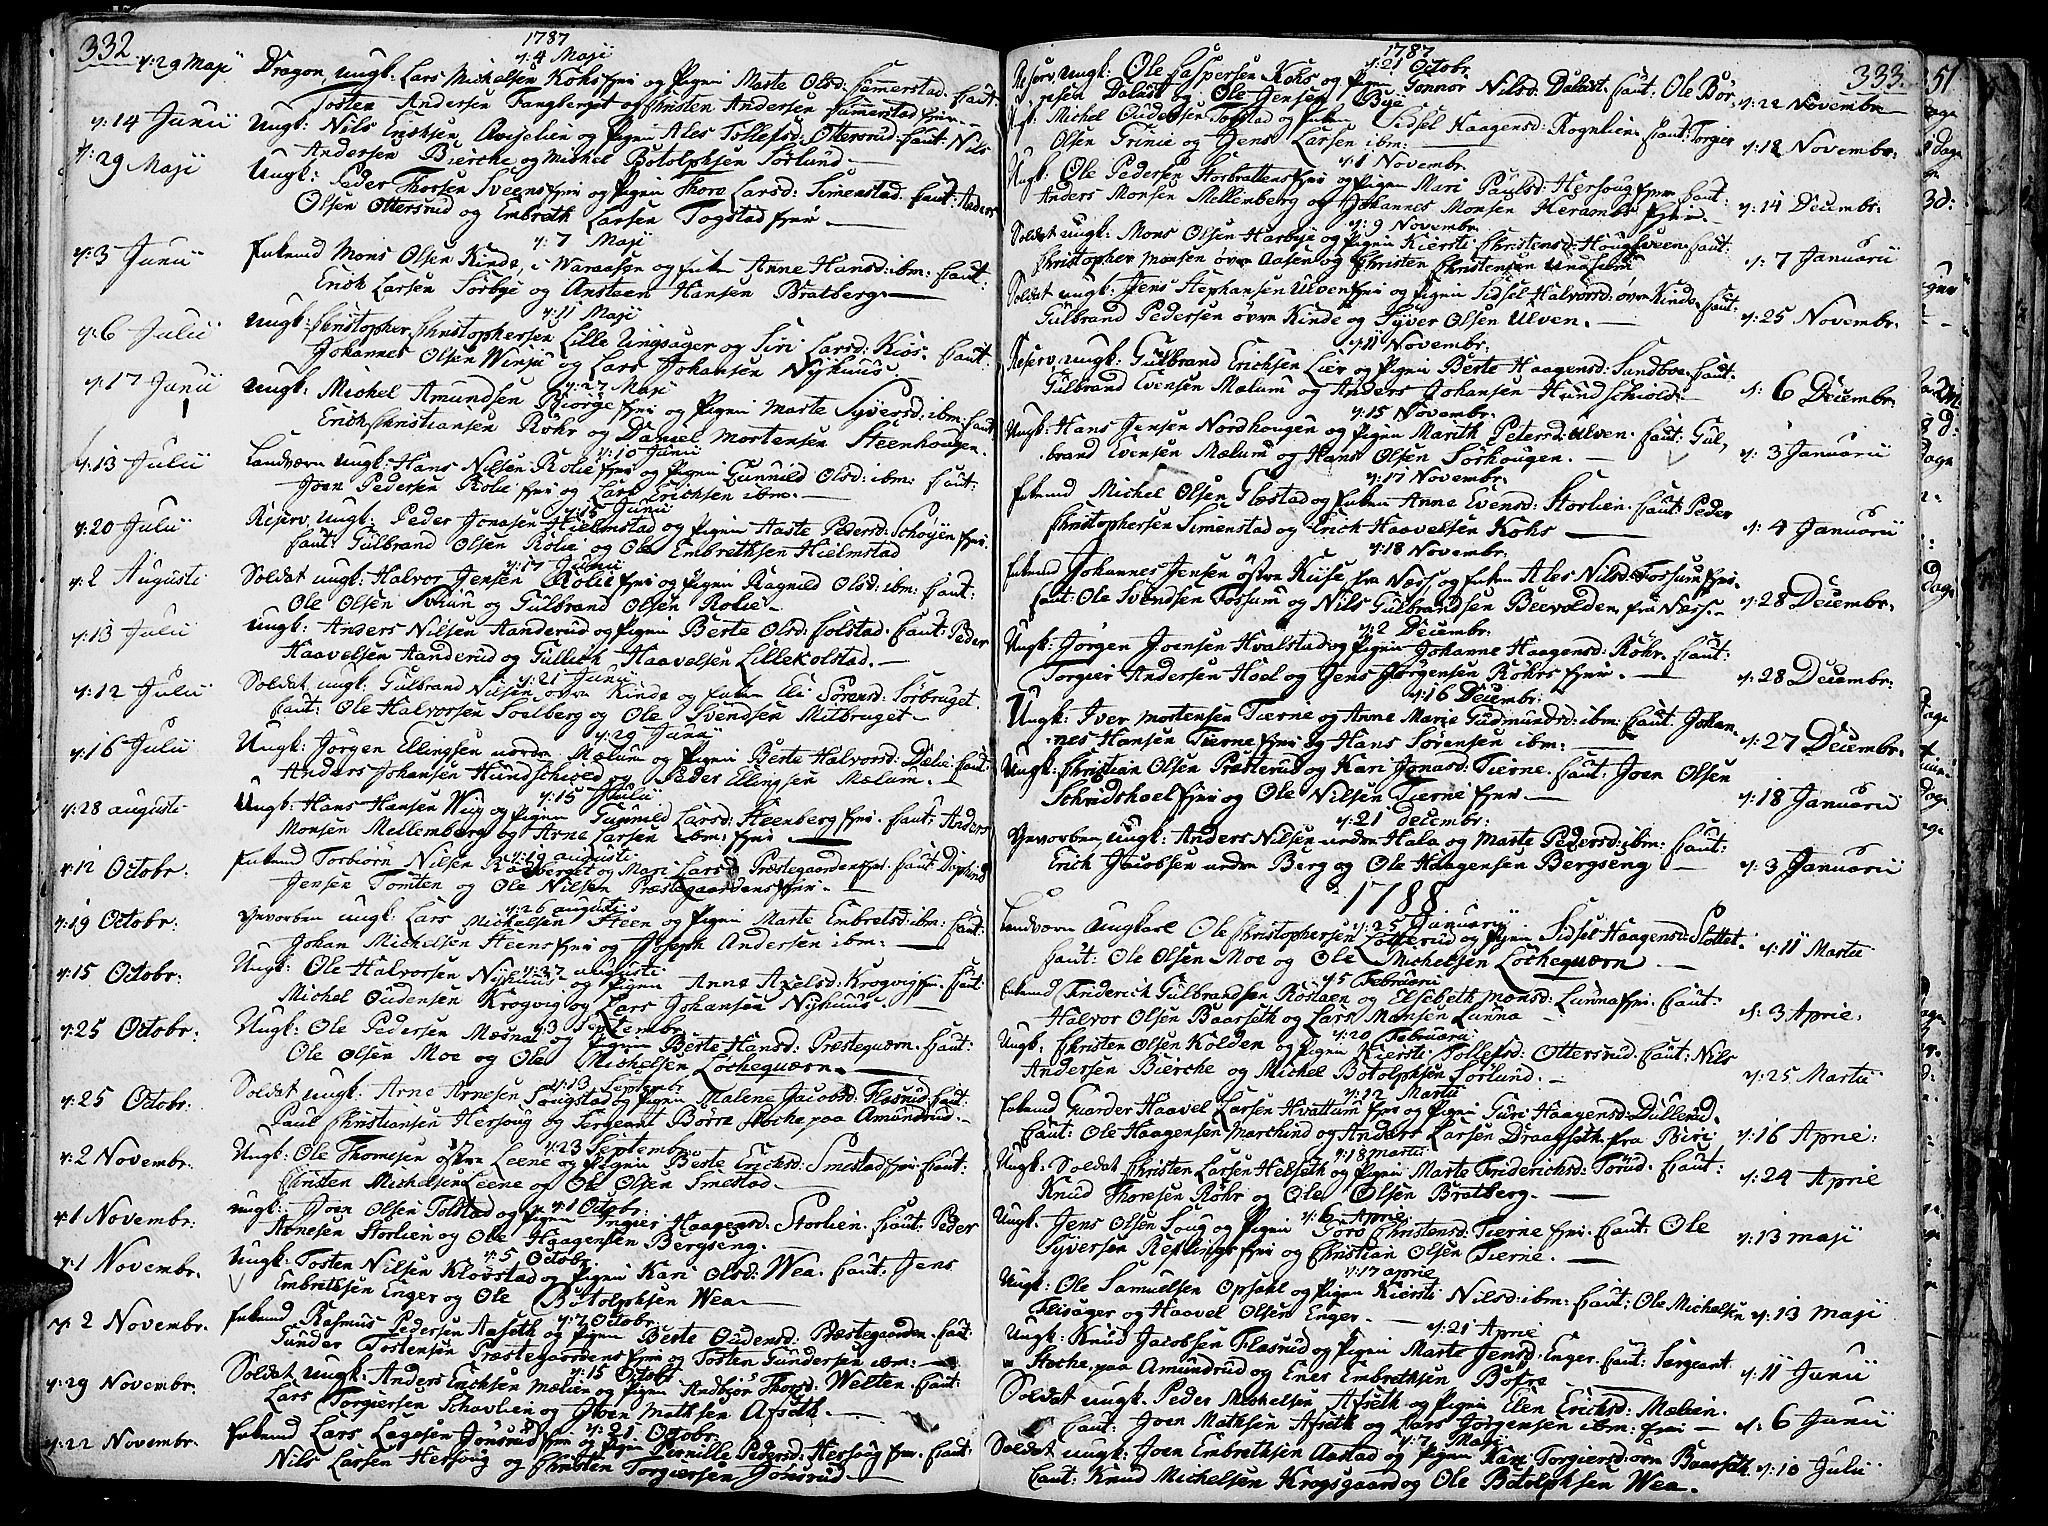 332
1787
d: 4 Maji
d: 29 Maji Dragon, ungk: Lars Michelsen Kohs Ejer og Pigen Marte Olsd: Sammerstad. Caut:
Tosten Andersen Fangberget og Christen Andersen Sammerstad Ejer.
d: 14 Junii Ungk: Nils Erichsen og Pigen Ales Tollefsd: Ottersrud. Caut: Nils
Andersen Bierche og Michel Botolphsen Sørlund.
d: 29 Maji Ungk: Peder Thorsen Sveens Ejer og Pigen Thore Larsd: Simenstad. Caut: Anders
Olsen Ottersrud og Embreth Larsen Togstad Ejer
d: 7 Maji
d: 3 Junii Enkemd Mons Olsen Kinde, i Waraasen og Enken Anne Hansd: ibm: Caut:
Erich Larsen Torbye og Ansteen Hansen Bratberg.
d: 11 Maji
d: 6 Julii Ungk: Christopher Christophersen Lille Ringsager og Siri Larsd: Kios. Caut:
Johannes Olsen Winju og Lars Johansen Nyhuus.
d: 27 Maji
d: 17 Junii Ungk: Michel Amundsen Biørge Ejer og Pigen Marte Syversd: ibm: Caut:
Erich Christiansen Røhr og Daniel Mortensen Steenhougen.
d: 10 Junii
d: 13 Julii Landværn Ungk: Hans Nilsen Rolie Ejer og Pigen Gunnild Olsd: ibm: Caut:
Joen Pedersen Rolie Ejer og Lars Erichsen ibm.
d: 15 Junii
d: 20 Julii Reserv, Ungk: Peder Jonasen Hielmstad og Pigen Aaste Pedersd: Schøyen Ejer.
Caut: Gulbrand Olsen Rolie og Ole Embrethsen Hielmstad
d: 17 Junii
d: 2 Augusti Soldat ungk: Halvor Jensen Rolie Ejer og Pigen Ragnild Olsd: ibm: Caut:
Ole Olsen og Gulbrand Olsen Rolie
d: 13 Julii Ungk: Anders Nilsen Aanderud og Pigen Berte Olsd: Colstad. Caut: Peder
Haavelsen Aanderud og Gullich Haavelsen Lillekolstad.
d: 21 Junii
d: 12 Julii Soldat, ungk: Gulbrand Nilsen øvre Kinde og Enken Eli Sørensd: Sørbruget.
Caut: Ole Halvorsen Soelberg og Ole Svendsen Mitbruget
d: 29 Junii
d: 16 Julii Ungk: Jørgen Ellingsen nordre Mælum og Pigen Berte Halvorsd: Dælie. Caut:
Anders Johansen Hundschioed og Peder Ellingsen Mælum.
d: 15 Julii
d: 28 augusti Ungk: Hans Hansen Wiig og Pigen Gunnild Larsd: Steenberg Ejer. Caut: Anders
Monsen Mellemberg og Arne Larsen ibm: Ejer
d: 19 augusti
d: 12 Octobr: Enkemd Torbiørn Nilsen og Mari Larsd: Præstegaarden Ejer. Caut
Jensen Tomten og Ole Nilsen Præstegaardens Ejer.
d: 26 augusti
d: 19 Octobr: Gevorben ungk: Lars Michelsen Steen og Pigen Marte Embretsd: ibm: Caut:
Johan Michelsen Steens Ejer og Joseph Andersen ibm:
d: 27 augusti
d: 15 Octobr: Ungk: Ole Halvorsen Nyhuus og Pigen Anne Axelsd: Krogvig Ejer. Caut:
Michel Oudensen Krogvig og Lars Johansen Nyhuus
d: 3 Septembr
d: 25 Octobr: Ungk: Ole Pedersen Mæsna og Pigen Berte Hansd: Præsteqværn. Caut:
Ole Olsen Moe og Ole Michelsen Løcheqværn.
d: 13 Septembr
d: 25 Octobr: Soldat ungk: Arne Arnesen Sougstad og Pigen Malene Jacobsd: Flisrud. Caut:
Paul Christiansen Hersoug og Sergeant Børre Stoche paa Amundrud.
d: 23 Septembr
d: 2 Novembr: Ungk: Ole Thomesen østre Leene og Pigen Berte Ericksd: Smestad Ejer. Caut:
Christen Michelsen Leene og Ole Olsen Smestad.
d: 1 Octobr:
d: 1 Novembr: ungk: Joen Olsen Tolstad og Pigen Ingier Haagensd: Storlien. Caut: Peder
Arnesen Storlien og Ole Haagensen Bergseng.
d: 5 Octobr
d: 1 Novembr. Ungk: Tosten Nilsen Kløvstad og Pigen Kari Olsd: Wea. Caut. Jens
Embrethsen Enger og Ole Botolphsen Wea
d: 7 Octobr
d: 2 Novembr. Enkemd Rasmus Pedersen Aaseth og Pigen Berte Oudensd: Præstegaarden. Caut:
Gunder Tostensen Præstegaardens Ejer og Tosten Gundersen ibm:
d: 15 Octobr
d: 29 Novembr: Soldat Ungk: Anders Erichsen Mælien og Pigen Andbjør Thorsd: Welten. Caut:
Lars Torgiersen Schavlien og Joen Mathsen Afseth.
d: 21 Octobr:
d: 22 Novembr. Enkemd Lars Lagesen Jønsrud Ejer og Pigen Pernille Pedersd: Hersoug Ejer. Caut:
Nils Larsen Hersoug og Christen Torgiersen Jønsrud
333.
1787
d: 21 Octobr
Reserv, Ungk: Ole Caspersen Kohs og Pigen Gonnor Nilsd: Dalset. Caut: Ole Bør,
gesen Dalset og Ole Jensen Bye d: 22 Novembr.
Ungk. Michel Oudensen Togstad og Enken Sidsel Haagensd: Rognlien. Caut: Torgier
Olsen Grinie og Jens Larsen ibm: d: 12 Novembr:
d: 1 Novembr
Ungk: Ole Pedersen Storbrattens Ejer og Pigen Mari Paulsd: Hersoug Ejer Caut:
Anders Monsen Mellenberg og Johannes Monsen Herambs Ejer. d: 14 Decembr:
d: 9 Novembr.
Soldat ungk: Mons Olsen Harbye og Pigen Kiersti Christensd: Hougsveen. Caut:
Christopher Monsen øvre Aasen og Christen Christensen ibm d: 7 Januarii
Soldat ungk: Jens Stephansen Ulven Ejer og Pigen Sidsel Halvorsd: øvre Kinde. Caut:
Gulbrand Pedersen øvre Kinde og Syver Olsen Ulven. d: 25 Novembr.
d: 11 Novembr.
Reserv, ungk: Gulbrand Erichsen Lier og Pigen Berte Haagensd: Sandboe. Caut.
Gulbrand Evensen Mælum og Anders Johansen Hundschiold: d: 6 Decembr.
d: 15 Novembr.
Ungk: Hans Jensen Nordhougen og Pigen Marith Petersd: Ulven. Caut: Gul,
brand Evensen Mælum og Hans Olsen Sørhougen. d: 3 Januarii
d: 17 Novembr.
Enkemd Michel Olsen Glæstad og Enken Anne Evensd: Storlien. Caut: Peder
Christophersen Simenstad og Erich Haavelsen Kohs d: 4 Januarii
d: 18 Novembr:
Enkemd Johannes Jensen østre Kiise, fra Næss, og Enken Ales Nilsd: Fossum Ejer.
Caut: Ole Svendsen Fossum og Nils Gulbrandsen Beevolden, fra Næss. d: 28 Decembr.
d: 2 Decembr:
Ungk: Jørgen Joensen Hvalstad og Pigen Johanne Haagensd: Røhr. Caut:
Torgier Andersen Hoel og Jens Jørgensen Røhrs Ejer. d: 28 Decembr:
d: 16 Decembr.
Ungk: Iver Mortensen Tierne og Anne Marie Gudmundsd: ibm: Caut. Johan,
nes Hansen Tierne Ejer og Hans Sørensen ibm: d: 27 Decembr.
Ungk: Christian Olsen Præsterud og Kari Jonasd: Tierne. Caut: Joen Olsen
Schredshoel Ejer og Ole Nilsen Tierne Ejer d: 18 Januarii
d: 21 decembr:
Gevorben, Ungk: Anders Nilsen nedre Hala og Marte Pedersd: ibm: Caut:
Erich Jacobsen nedre Berg og Ole Haagensen Bergseng d: 3 Januarii
1788
d: 25 Januarii
Landværn Ungkarl Ole Christophersen Lotterud og Pigen Sidsel Haagensd: Slottet.
Caut: Ole Olsen Moe og Ole Michelsen Løcheqværn. d: 11 Martii
d: 5 Februarii
Enkemd Friderich Gulbrandsen Røslaen og Elsebeth Monsd: Lunna Ejer. Caut:
Halvor Olsen Baarseth og Lars Monsen Lunna d: 3 Aprie:
d: 20 Februarii
Ungk. Christen Olsen Kolden og Pigen Kiersti Tollefsd: Ottersrud. Caut: Nils
Andersen Bierche og Michel Botolphsen Sørlund. d: 25 Martii
d: 12 Martii
Enkemd Guarder Haavel Larsen Hvattum Ejer og Pigen Guri Haagensd: Dullerud.
Caut: Ole Haagensen Marchind og Anders Larsen Draagseth fra Biri d: 16 Aprie:
d: 18 Martii
Ungk: Soldat Christen Larsen Hedseth og Pigen Marte Friderichsd: Torud. Caut:
Knud Thoresen Røhr og Ole Olsen Bratberg. d: 24 Aprie
d: 6 Aprie:
Ungk. Jens Olsen Soug og Pigen Goro Christensd: Tierne Ejer. Caut: Ole
Syversen Reslings Ejer og Christian Olsen Tierne. d: 13 maji
d: 17 aprie
Ungk: Ole Samuelsen Opsahl og Pigen Kiersti Nilsd: ibm: Caut: Ole Michelsen
Flisager og Haavel Olsen Enger. d: 13 maji
d: 21 Aprie
Ungk: Knud Jacobsen Flasrud og Pigen Marte Jensd: Enger. Caut: Sergeant
Stoche paa Amundrud og Enes Embrethsen Bøhre d: 11 Junii
Soldat ungk. Peder Michelsen Afseth og Pigen Elen Ericksd: Mælien.
Caut: Joen Mathsen Afseth og Lars Jørgensen ibm: Ejer d: 6 Junii
d: 7 Maji
Soldat ungk: Joen Embrethsen Aastad og Pigen Kari Torgiersd: øvre Baarseth
Caut: Knud Michelsen Krogsgaard og Ole Botolphsen Wea. d: 10 Julii
51